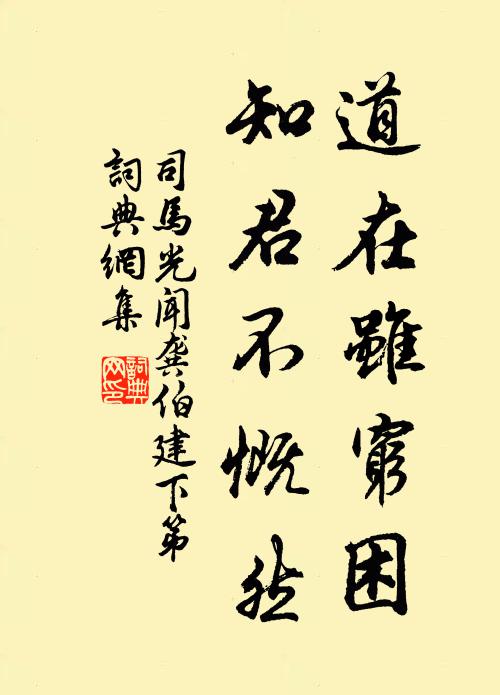 道在雖窮困
知君不慨然
司馬光聞龔伯建下第
詞典網集
詞典網印